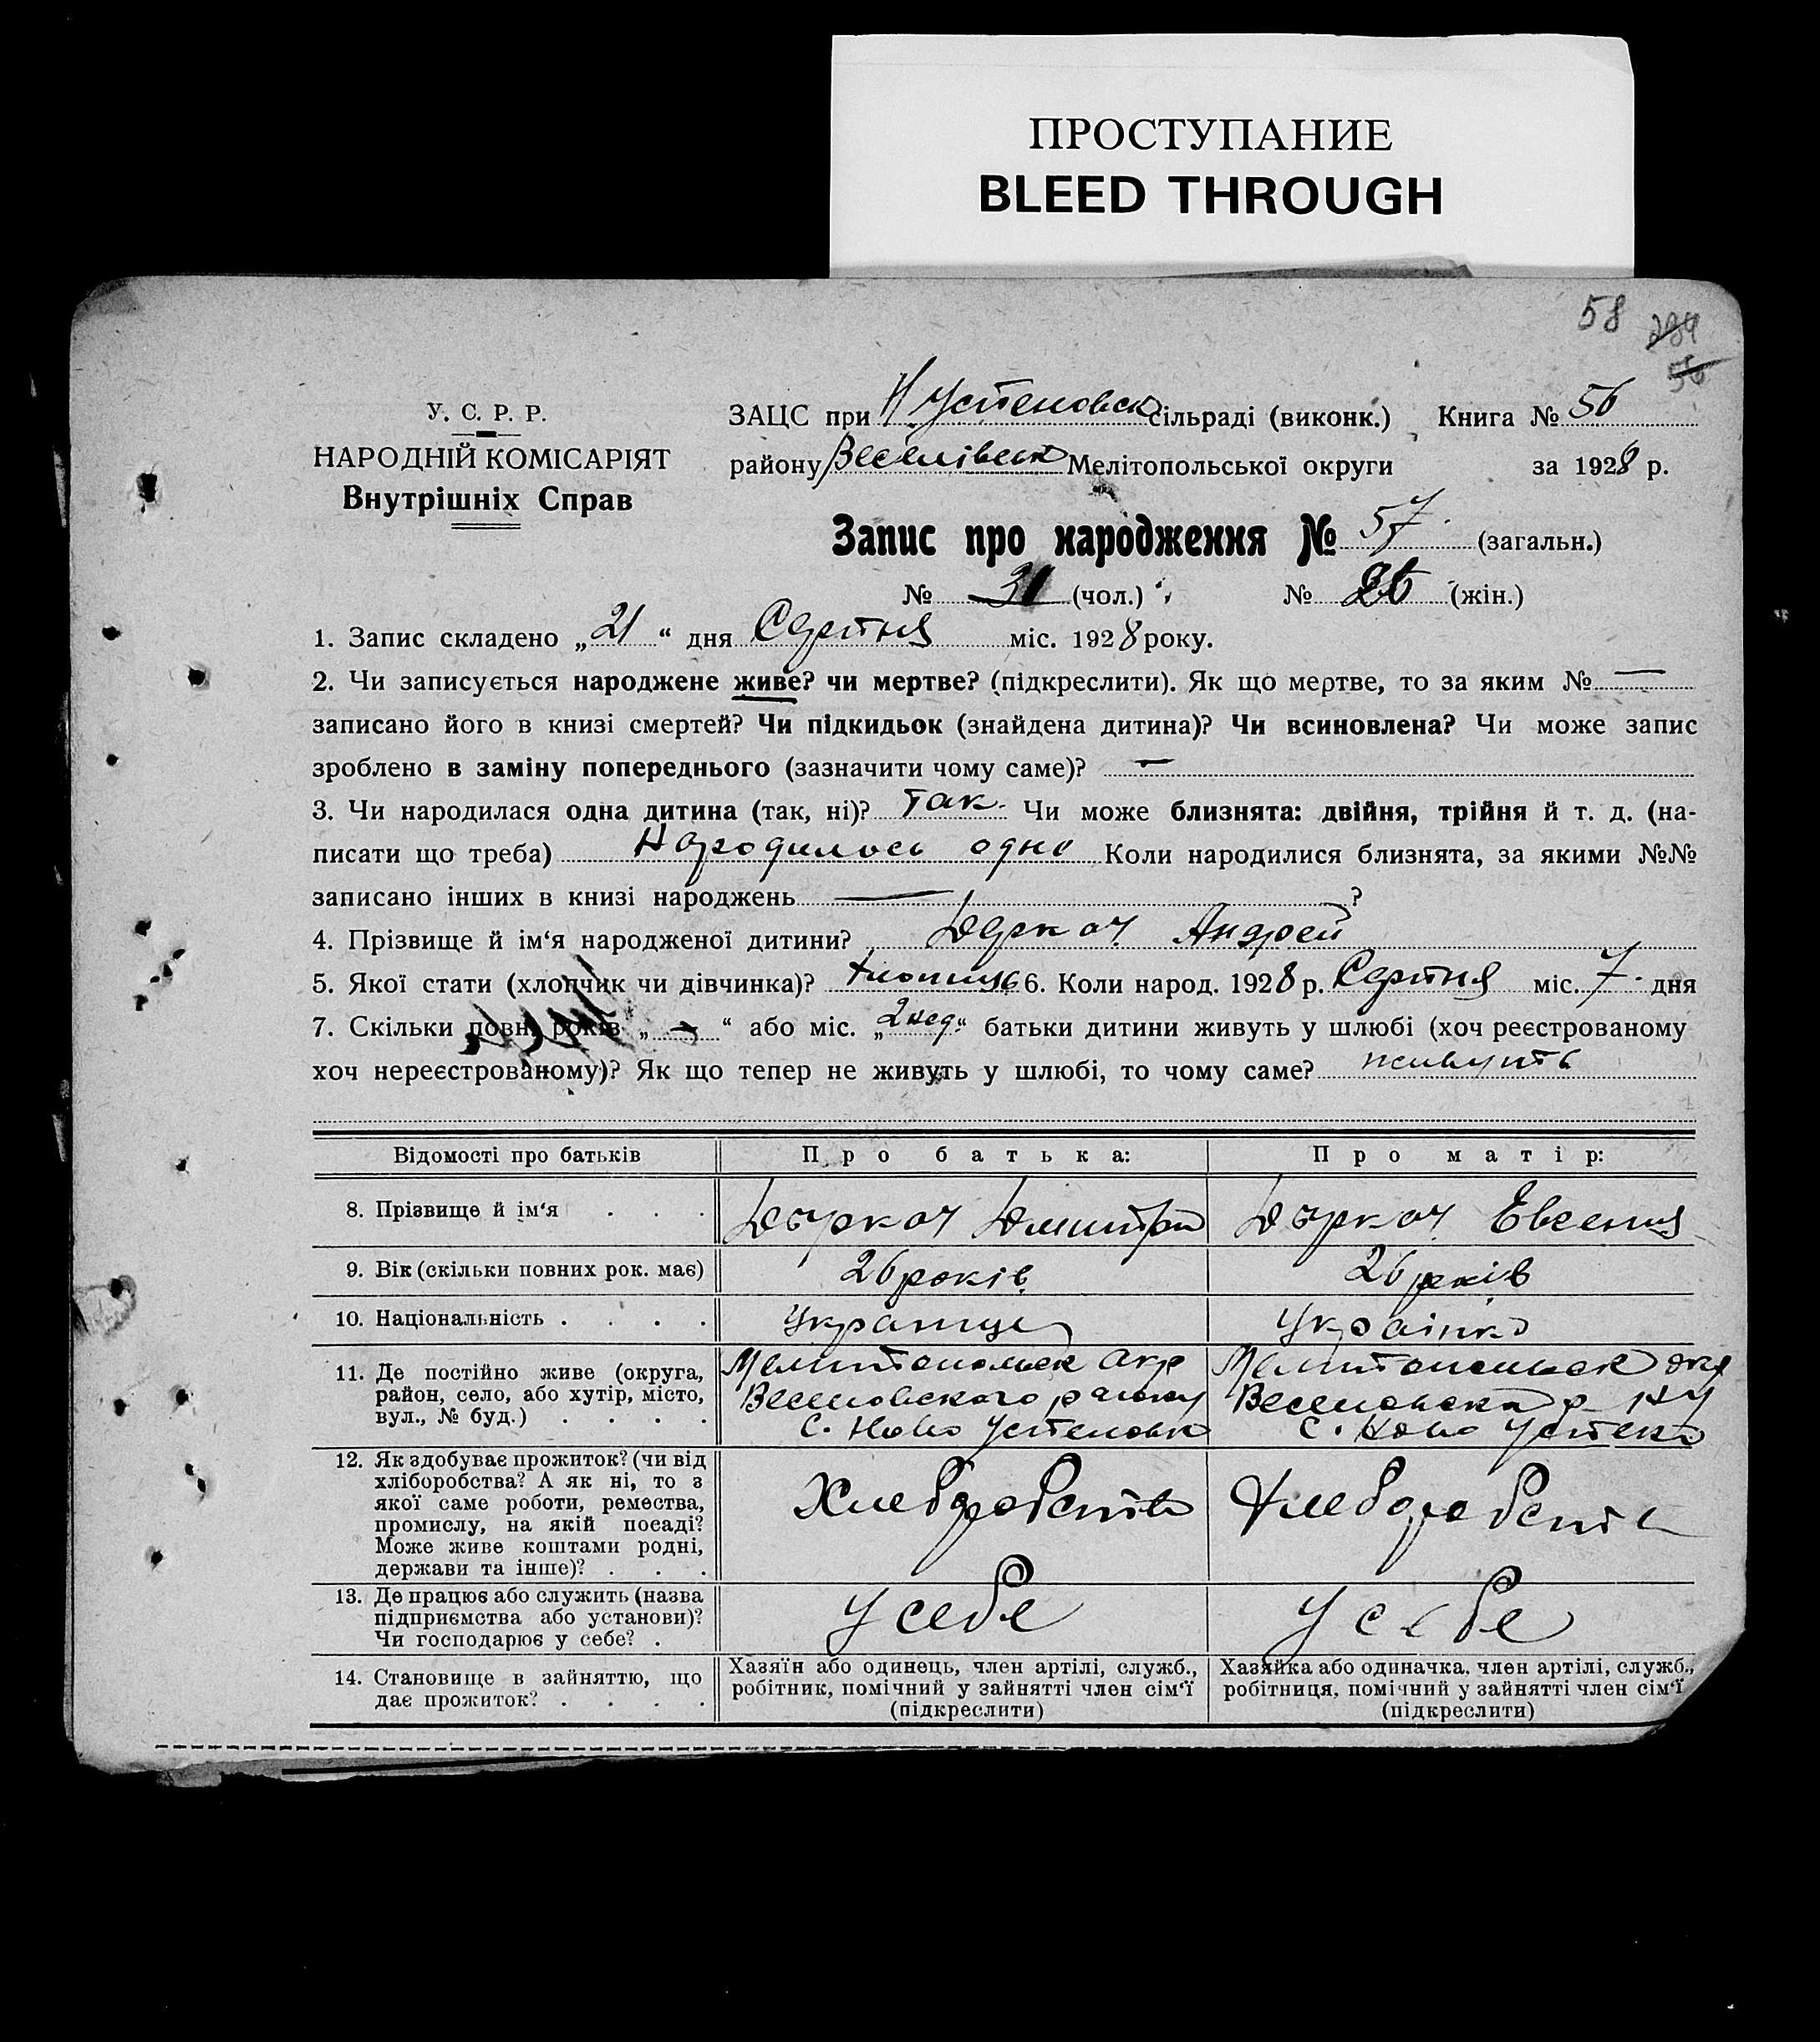 ПРОСТУПАНИЕ
BLEED THROUGH
58 234
56
У. С. Р. Р.
НАРОДНІЙ КОМІСАРІЯТ
Внутрішніх Справ
ЗАЦС при Н Устеновск сільраді (виконк.) Книга № 56
району Веселівськ Мелітопольської округи за 1928 р.
Запис про народження № 57 (загальн.)
№ 31 (чол.) № 26 (жін.)
1. Запис складено „21“ дня Серпня міс. 1928 року.
2. Чи записується народжене живе? чи мертве? (підкреслити). Як що мертве, то за яким № —
записано його в книзі смертей? Чи підкидьок (знайдена дитина)? Чи всиновлена? Чи може запис
зроблено в заміну попереднього (зазначити чому саме)? —
3. Чи народилася одна дитина (так, ні)? так. Чи може близнята: двійня, трійня й т. д. (на-
писати що треба) Народилось одно Коли народилися близнята, за якими №№
записано інших в книзі народжень — ?
4. Прізвище й ім‘я народженої дитини? Деркач Андрей
5. Якої стати (хлопчик чи дівчинка)? хлопець 6. Коли народ. 1928 р. Серпня міс. 7 дня
7. Скільки повн. років „—“ або міс. „2 нед.“ батьки дитини живуть у шлюбі (хоч реєстрованому
хоч нереєстрованому)? Як що тепер не живуть у шлюбі, то чому саме? живуть
Відомості про батьків Про батька: Про матір:
8. Прізвище й ім‘я . . . Деркач Дмитри Деркач Евгения
9. Вік (скільки повних рок. має) 26 років 26 років
10. Національність . . . . Украинец Українка
11. Де постійно живе (округа, Мелитопольск окр Мелитопольск окр
район, село, або хутір, місто, Веселовского району Веселовска р-ну
вул., № буд.) . . . . С. Ново Устеновк С. Ново Устенко
12. Як здобуває прожиток? (чи від
хліборобства? А як ні, то з
якої саме роботи, ремества, Хлеборобств Хлеборобств
промислу, на якій посаді?
Може живе коштами родні,
держави та інше)? . . .
13. Де працює або служить (назва
підприємства або установи)? У себе У себе
Чи господарює у себе? .
14. Становище в зайняттю, що
дає прожиток? . . . .
Хазяїн або одинець, член артілі, служб.,
робітник, помічний у зайнятті член сім‘ї
(підкреслити)
Хазяйка або одиначка, член артілі, служб.,
робітниця, помічний у зайнятті член сім‘ї
(підкреслити)